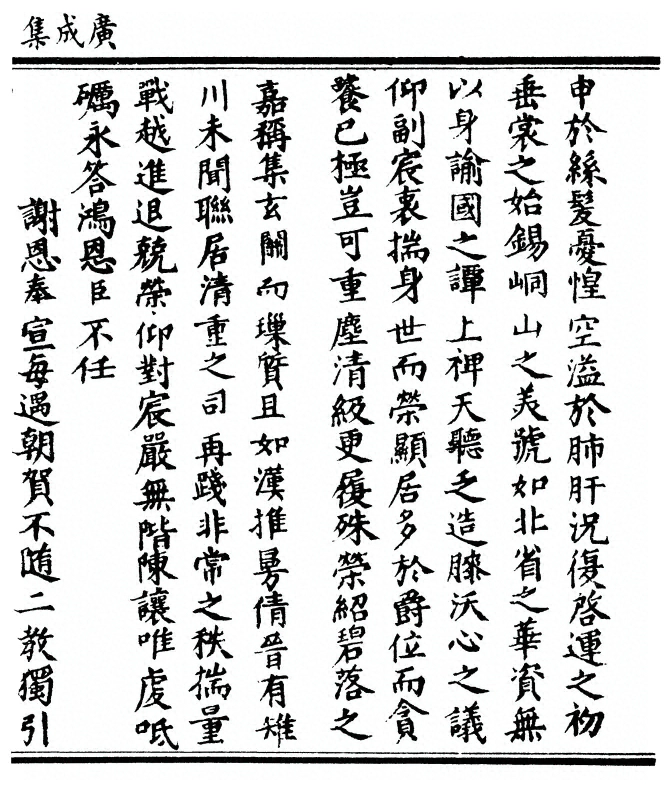 廣成集
申於絲髮憂惶空溢於肺肝況復啓運之初
垂裳之始錫峒山之美號如非省之華資無
以身諭國之譚上禆天聽乏造膝沃心之議
仰副宸衷揣身世而榮顯居多於爵位而貪
饕已極豈可重塵清級更履殊榮紹碧落之
嘉稱集玄關而璅質且如漢推曼倩晉有雉
川未聞聯居清重之司再踐非常之秩揣量
戰越進退兢榮仰對宸嚴無階陳讓唯虔呧
礪永答鴻恩臣不任
謝恩奉宣每遇朝賀不随二教獨引